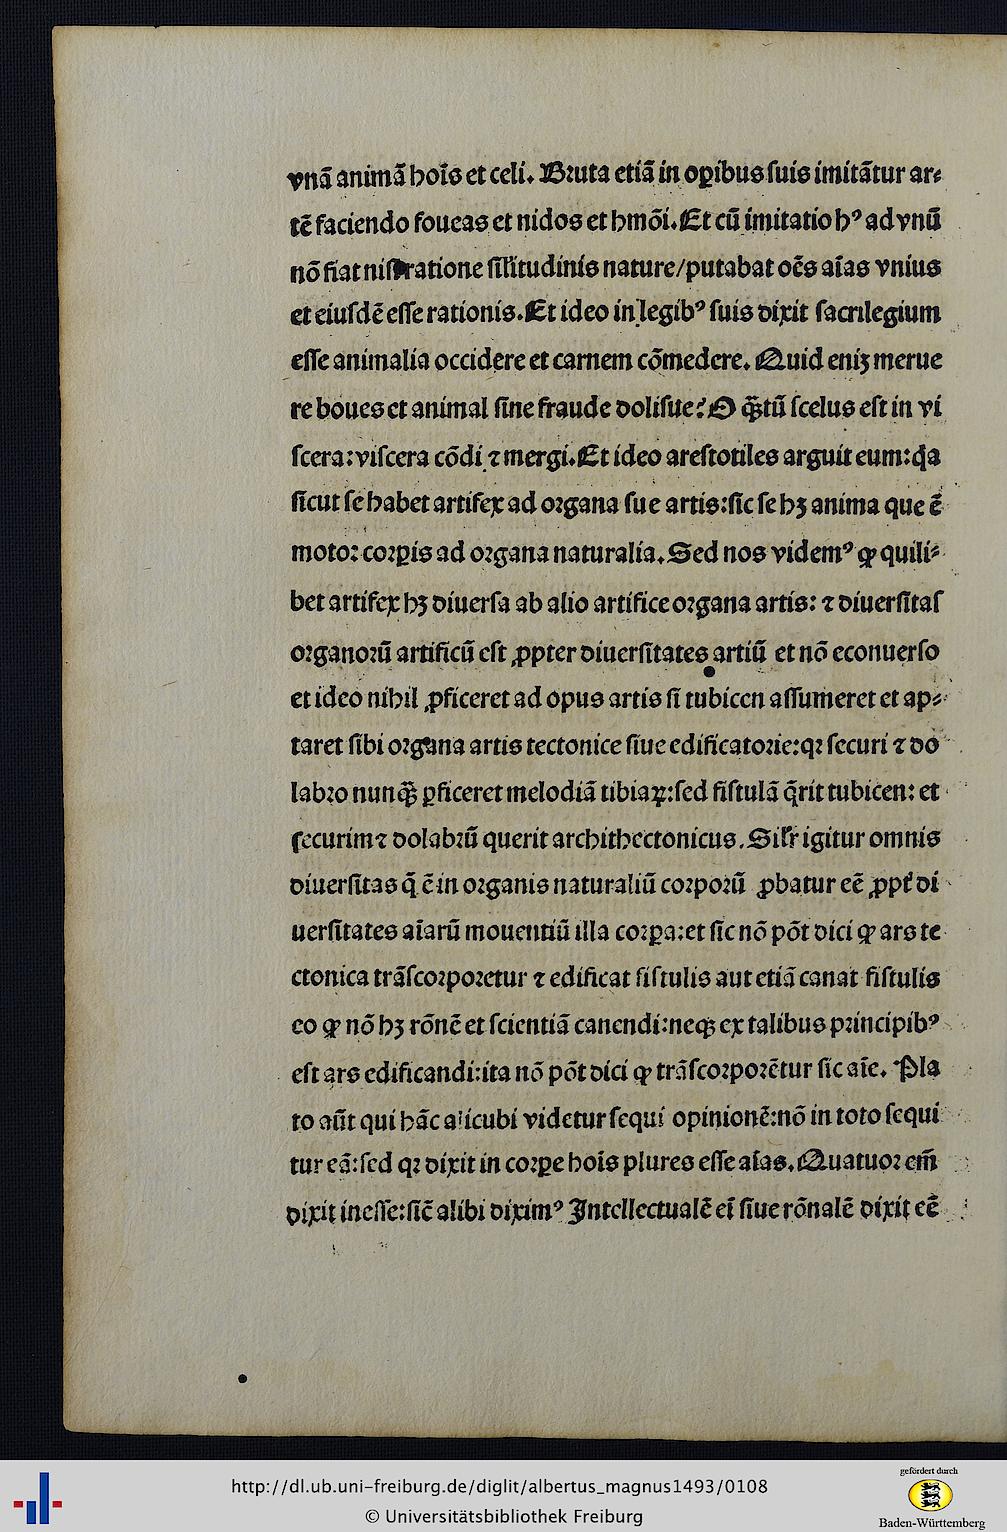 vnā animā hoīs et celi. Bꝛuta etiā in oꝑibus ſuis imitātur ar⸗
tē faciendo foueas et nidos et hmōi. Et cū imitatio hꝰ ad vnū
nō fiat niſi ratione ſilitudinis nature/putabat oēs aīas vnius
et eiuſdē eſſe rationis. Et ideo in legibꝰ ſuis dixit ſacrilegium
eſſe animalia occidere et carnem cōmedere. Quid eniꝫ merue
re boues et animal ſine fraude doliſue? O qͣ̄tū ſcelus eſt in vi
ſcera: viſcera cōdi ⁊ mergi. Et ideo areſtotiles arguit eum: qꝛa
ſicut ſe habet artifex ad oꝛgana ſue artis: ſic ſe hꝫ anima que ē
motoꝛ coꝛꝑis ad oꝛgana naturalia. Sed nos videmꝰ ꝙ quili⸗
bet artifex hꝫ diuerſa ab alio artifice oꝛgana artis: ⁊ diuerſitaſ
oꝛganoꝛū artificū eſt ꝓpter diuerſitates artiū et nō econuerſo
et ideo nihil ꝓficeret ad opus artis ſi tubicen aſſumeret et ap⸗
taret ſibi oꝛgana artis tectonice ſiue edificatoꝛie: qꝛ ſecuri ⁊ do
labꝛo nunqͣ̄ ꝑficeret melodiā tibiaꝝ: ſed fiſtulā q̄rit tubicen: et
ſecurim ⁊ dolabꝛū querit archithectonicus. Silr̄ igitur omnis
diuerſitas q̄ ē in oꝛganis naturaliū coꝛpoꝛū ꝓbatur eē ꝓpt̄ di
uerſitates aīarū mouentiū illa coꝛꝑa: et ſic nō pōt dici ꝙ ars te
ctonica trāſcoꝛpoꝛetur ⁊ edificat fiſtulis aut etiā canat fiſtulis
eo ꝙ nō hꝫ rōnē et ſcientiā canendi: neqꝫ ex talibus pꝛincipibꝰ
eſt ars edificandi: ita nō pōt dici ꝙ trāſcoꝛpoꝛētur ſic aīe. Pla
to aūt qui hāc alicubi videtur ſequi opinionē: nō in toto ſequi
tur eā: ſed qꝛ dixit in coꝛꝑe hoīs plures eſſe aīas. Quatuoꝛ em̄
dixit ineſſe: ſic̄ alibi diximꝰ Intellectualē eī ſiue rōnalē dixit eē
http://dl.ub.uni-freiburg.de/diglit/albertus_magnus1493/0108
© Universitätsbibliothek Freiburg
gefördert durch
Baden-Württemberg